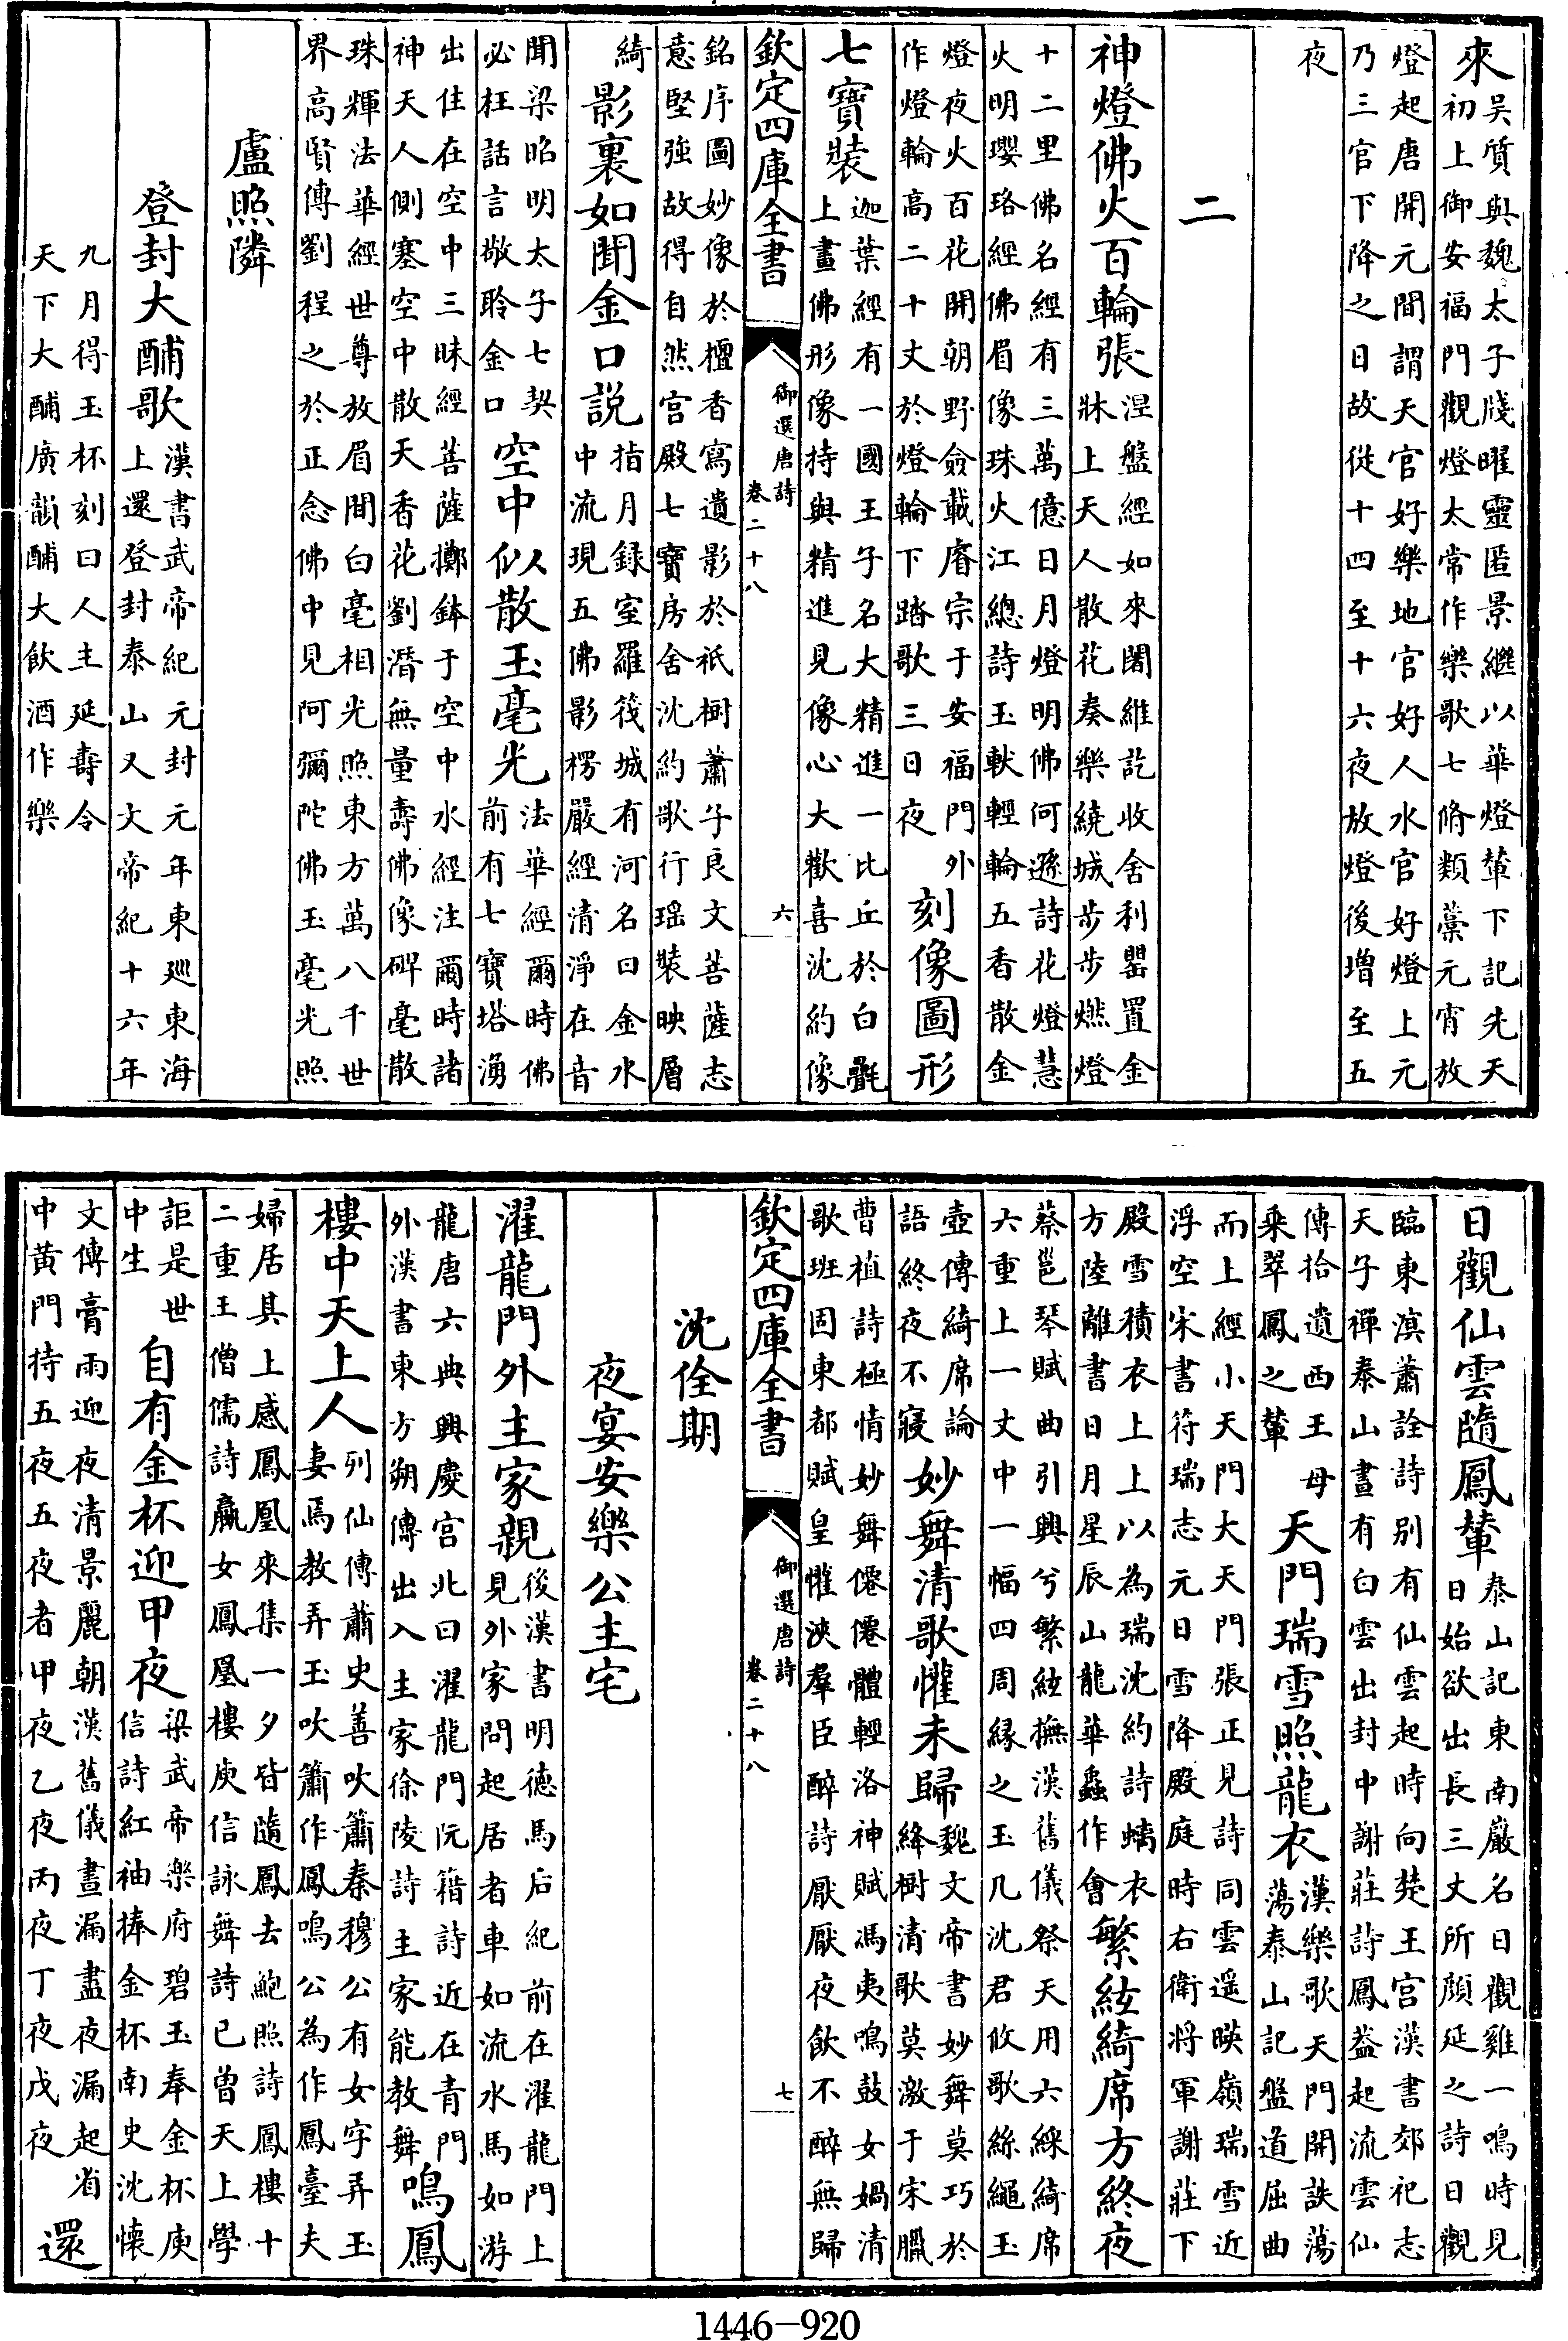 來吳質與魏太子牋曜靈匿景繼以華燈輦下記先天
初上御安福門觀燈太常作樂歌七脩類藁元宵放
燈起唐開元間謂天官好樂地官好人水官好燈上元
乃三官下降之日故從十四至十六夜放燈後增至五
夜
二
神燈佛火百輪張涅盤經如來闍維訖收舍利罌置金
牀上天人散花奏樂繞城步步燃燈
十二里佛名經有三萬億日月燈明佛何遜詩花燈慧
火明瓔珞經佛眉像珠火江總詩玉軑輕輪五香散金
燈夜火百花開朝野僉載睿宗于安福門外
作燈輪高二十丈於燈輪下踏歌三日夜刻像圖形
七寶裝迦葉經有一國王子名大精進一比丘於白㲲
上畫佛形像持與精進見像心大歡喜沈約像
欽定四庫全書 御選唐詩 卷二十八 六
銘序圖妙像於檀香寫遺影於祇樹蕭子良文菩薩志
意堅強故得自然宮殿七寶房舍沈約歌行瑶裝映層
綺影裏如聞金口説指月録室羅筏城有河名曰金水
中流現五佛影楞嚴經清淨在音
聞梁昭明太子七契
必枉話言敬聆金口空中似散玉毫光法華經爾時佛
前有七寶塔湧
出住在空中三昧經菩薩擲鉢于空中水經注爾時諸
神天人側塞空中散天香花劉潛無量壽佛像碑毫散
珠輝法華經世尊放眉間白毫相光照東方萬八千世
界高賢傳劉程之於正念佛中見阿彌陀佛玉毫光照
盧照隣
登封大酺歌漢書武帝紀元封元年東廵東海
上還登封泰山又文帝紀十六年
九月得玉杯刻曰人主延壽令
天下大酺廣韻酺大飲酒作樂
日觀仙雲隨鳳輦泰山記東南巖名日觀雞一鳴時見
日始欲出長三丈所顔延之詩日觀
臨東溟蕭詮詩别有仙雲起時向楚王宮漢書郊祀志
天子禪泰山晝有白雲出封中謝莊詩鳳葢起流雲仙
傳拾遺西王母
乘翠鳳之輦天門瑞雪照龍衣漢樂歌天門開詄蕩
蕩泰山記盤道屈曲
而上經小天門大天門張正見詩同雲遥映嶺瑞雪近
浮空宋書符瑞志元日雪降殿庭時右衛將軍謝莊下
殿雪積衣上上以為瑞沈約詩螭衣
方陸離書日月星辰山龍華蟲作會繁絃綺席方終夜
蔡邕琴賦曲引興兮繁絃撫漢舊儀祭天用六綵綺席
六重上一丈中一幅四周緣之玉几沈君攸歌絲繩玉
壺傳綺席論
語終夜不寢妙舞清歌懽未歸魏文帝書妙舞莫巧於
絳樹清歌莫激于宋臘
曹植詩極情妙舞僊僊體輕洛神賦馮夷鳴鼓女媧清
歌班固東都賦皇懽浹羣臣醉詩厭厭夜飲不醉無歸
欽定四庫全書 御選唐詩 卷二十八 七
沈佺期
夜宴安樂公主宅
濯龍門外主家親後漢書明德馬后紀前在濯龍門上
見外家問起居者車如流水馬如游
龍唐六典興慶宮北曰濯龍門阮籍詩近在青門
外漢書東方朔傳出入主家徐陵詩主家能教舞鳴鳳
樓中天上人列仙傳蕭史善吹簫秦穆公公有女字弄玉
妻焉教弄玉吹簫作鳳鳴公為作鳳臺夫
婦居其上感鳳凰來集一夕皆隨鳳去鮑照詩鳳樓十
二重王僧儒詩贏女鳳凰樓庾信詠舞詩已曾天上學
詎是世
中生自有金杯迎甲夜梁武帝樂府碧玉奉金杯庾
信詩紅袖捧金杯南史沈懷
文傳膏雨迎夜清景麗朝漢舊儀晝漏盡夜漏起省
中黄門持五夜五夜者甲夜乙夜丙夜丁夜戊夜還
1446-920